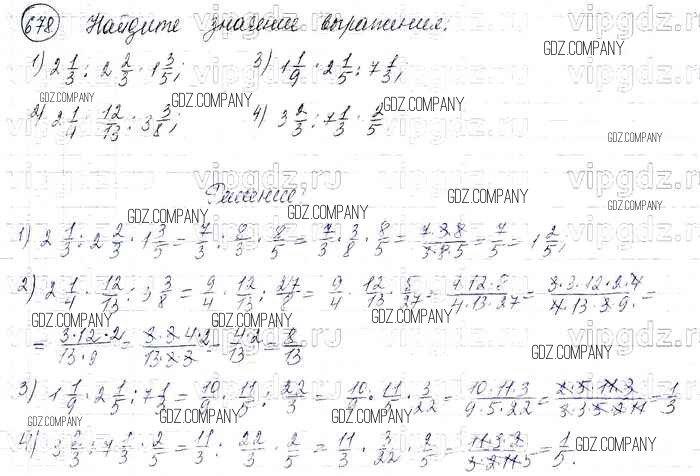 678 Найдите значение выражения:
1) 2 1/3 : 2 2/3 · 1 3/5; 3) 1 1/9 · 2 1/5 : 7 1/3;
2) 2 1/4 · 12/13 : 3 3/8; 4) 3 2/3 : 7 1/3 · 2/5.
Решение:
1) 2 1/3 : 2 2/3 · 1 3/5 = 7/3 : 8/3 · 8/5 = 7/3 · 3/8 · 8/5 = 7·3·8/3·8·5 = 7/5 = 1 2/5;
2) 2 1/4 · 12/13 : 3 3/8 = 9/4 · 12/13 : 27/8 = 9/4 · 12/13 · 8/27 = 9·12·8/4·13·27 = 3·3·12·2·4/4·13·3·9 =
= 3·12·2/13·9 = 3·3·4·2/13·3·3 = 4·2/13 = 8/13
3) 1 1/9 · 2 1/5 : 7 1/3 = 10/9 · 11/5 : 22/3 = 10/9 · 11/5 · 3/22 = 10·11·3/9·5·22 = 2·5·11·3/3·3·5·2·11 = 1/3
4) 3 2/3 : 7 1/3 · 2/5 = 11/3 : 22/3 · 2/5 = 11/3 · 3/22 · 2/5 = 11·3·2/3·2·11·5 = 1/5.
GDZ.COMPANY
vipgdz.ru